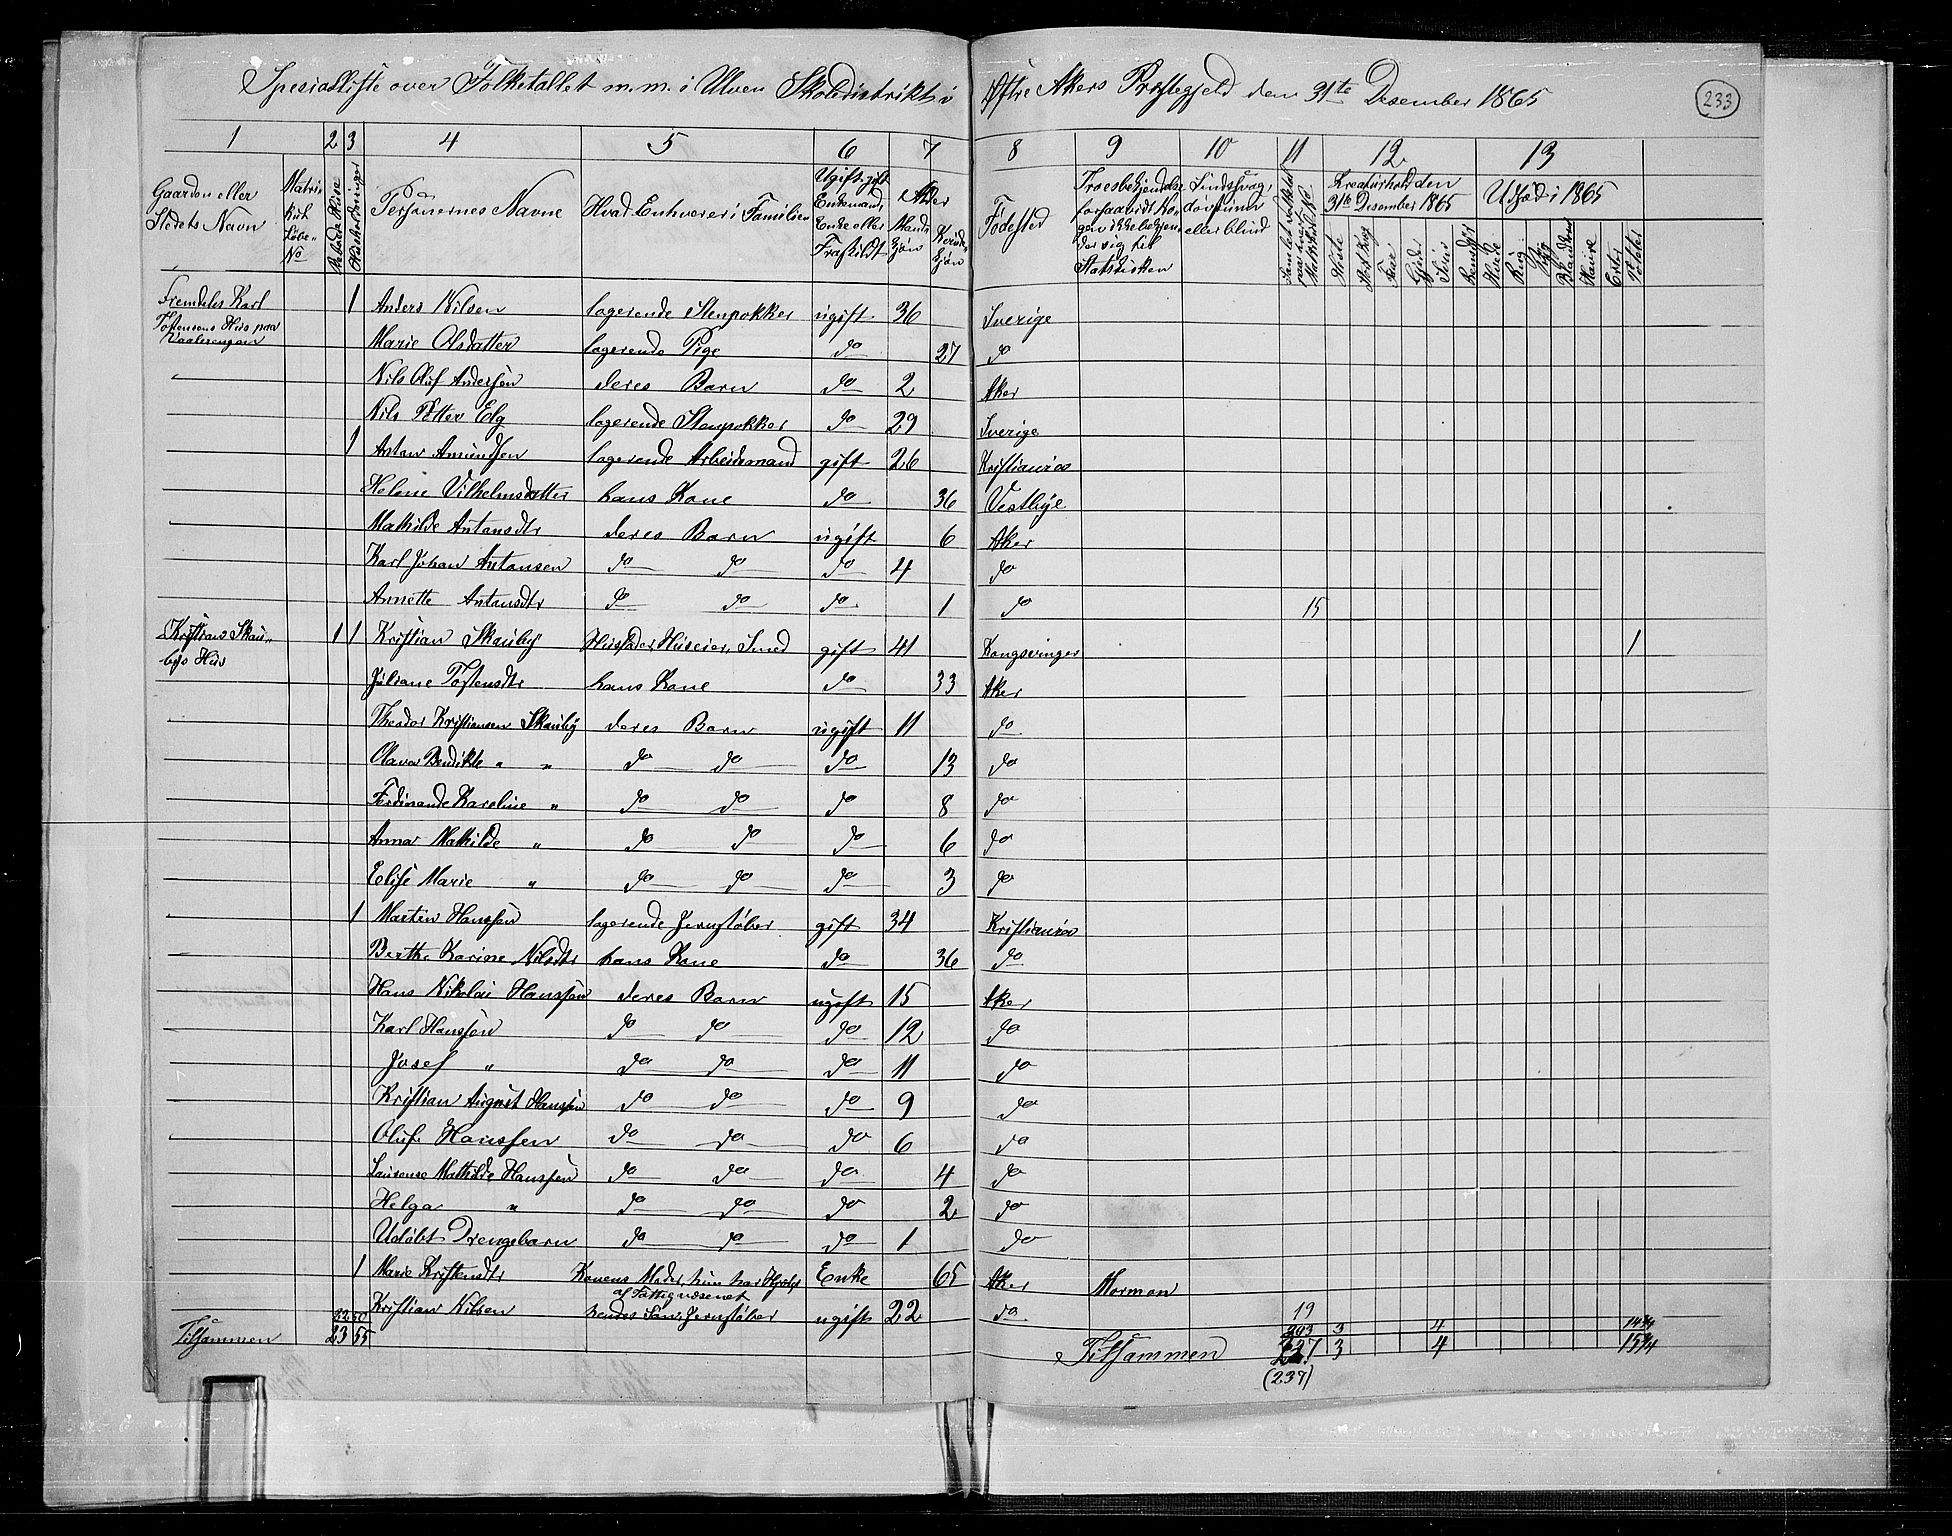 Spesialliste over Folketallet m. m. i Ulven Skoledistrikt i Østre Akers Prestegjeld den 31te Desember 1865
233
1 2 3 4 5 6 7 8 9 10 11 12 13
Gaarden eller Stedets Navn
Matrikul Løbe-No
Beboede Huse
Husholdninger
Personernes Navne
Hvad Enhver er i Familien
Ugift, gift Enkemand, Enke eller Fraskildt
Alder
Mandkjøn
Kvindekjøn
Fødested
Troesbekjendelse forsaavidt Nogen ikke bekjender sig til Statskirken
Sindssvag, døvstum eller blind
Kreaturhold den 31te Desember 1865
Heste
Faar
Gjeder
Sviin
Rensdyr
Udsæd i 1865
Hvede
Rug
Byg
Havre
Erter
Poteter
Fremdeles Karl Tostensens Hus paa Vaalerengen 1 Anders Nilsen logerende Stenpokker ugift 36 Sverige
Marie Olsdatter logerende Pige do 27 do
Nils Oluf Andersen deres Barn do 2 Aker
Nils Petter Elg logerende Stenpokker do 29 Sverige
1 Anton Amundsen logerende Arbeidsmand gift 26 Kristiania
Helene Vilhelmsdatter hans Kone do 36 Vestbye
Mathilde Antonsdtr deres Barn ugift 6 Aker
Karl Johan Antonsen do do do 4 do
Annette Antonsdtr do do do 1 do 15
Kristians Skaubys Hus 1 1 Kristian Skauby Husfader, Huseier, Smed gift 41 Kongsvinger 1
Juliane Tostensdtr hans Kone do 33 Aker
Theodor Kristiansen Skauby deres Barn ugift 11 do
Olava Bendikte " " do do do 13 do
Ferdinande Kareline " do do do 8 do
Anna Mathilde " do do do 6 do
Elise Marie " do do do 3 do
1 Martin Hanssen logerende Jernstøber gift 34 Kristiania
Berthe Karine Nilsdtr hans Kone do 36 do
Hans Nikolai Hanssen deres Barn ugift 15 Aker
Karl Hanssen do do do 12 do
Josef " do do do 11 do
Kristian August Hanssen do do do 9 do
Oluf Hanssen do do do 6 do
Laurense Mathilde Hanssen do do do 4 do
Helga " do do do 2 do
Udøbt Drengebarn do do do 1 do
1 Marie Kristensdtr Konens Moder, hun har Hjælp af Fattigvæsenet Enke 65 Aker Mormon
Kristian Nilsen hendes Søn, Jernstøber ugift 22 do 19
22 50 203 3 4 14 3/4
Tilsammen 23 55 Tilsammen 237 3 4 15 3/4
(237)